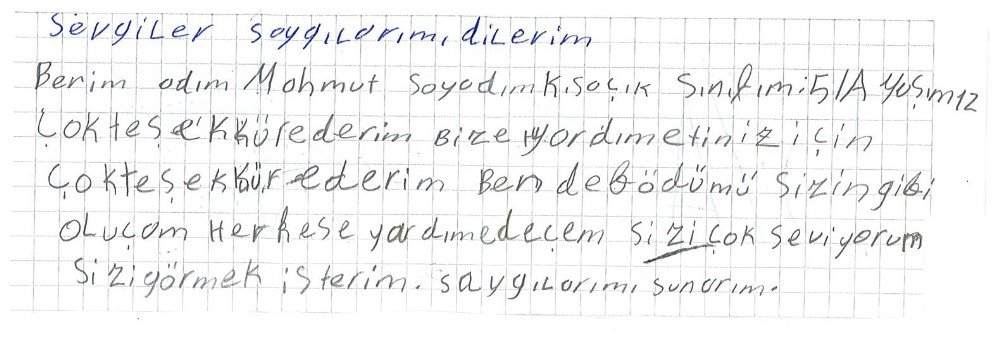 Sevgiler saygılarımı dilerim
Benim adım Mahmut Soyadım Kısaçık Sınıfım: 5/A Yaşım 12
Çok teşekkür ederim Bize yardım etiniz için
Çok teşekkür ederim Ben de bödümü sizin gibi
oluçam Herkese yardım edeçem sizi çok seviyorum
Sizi görmek isterim. saygılarımı sunarım.